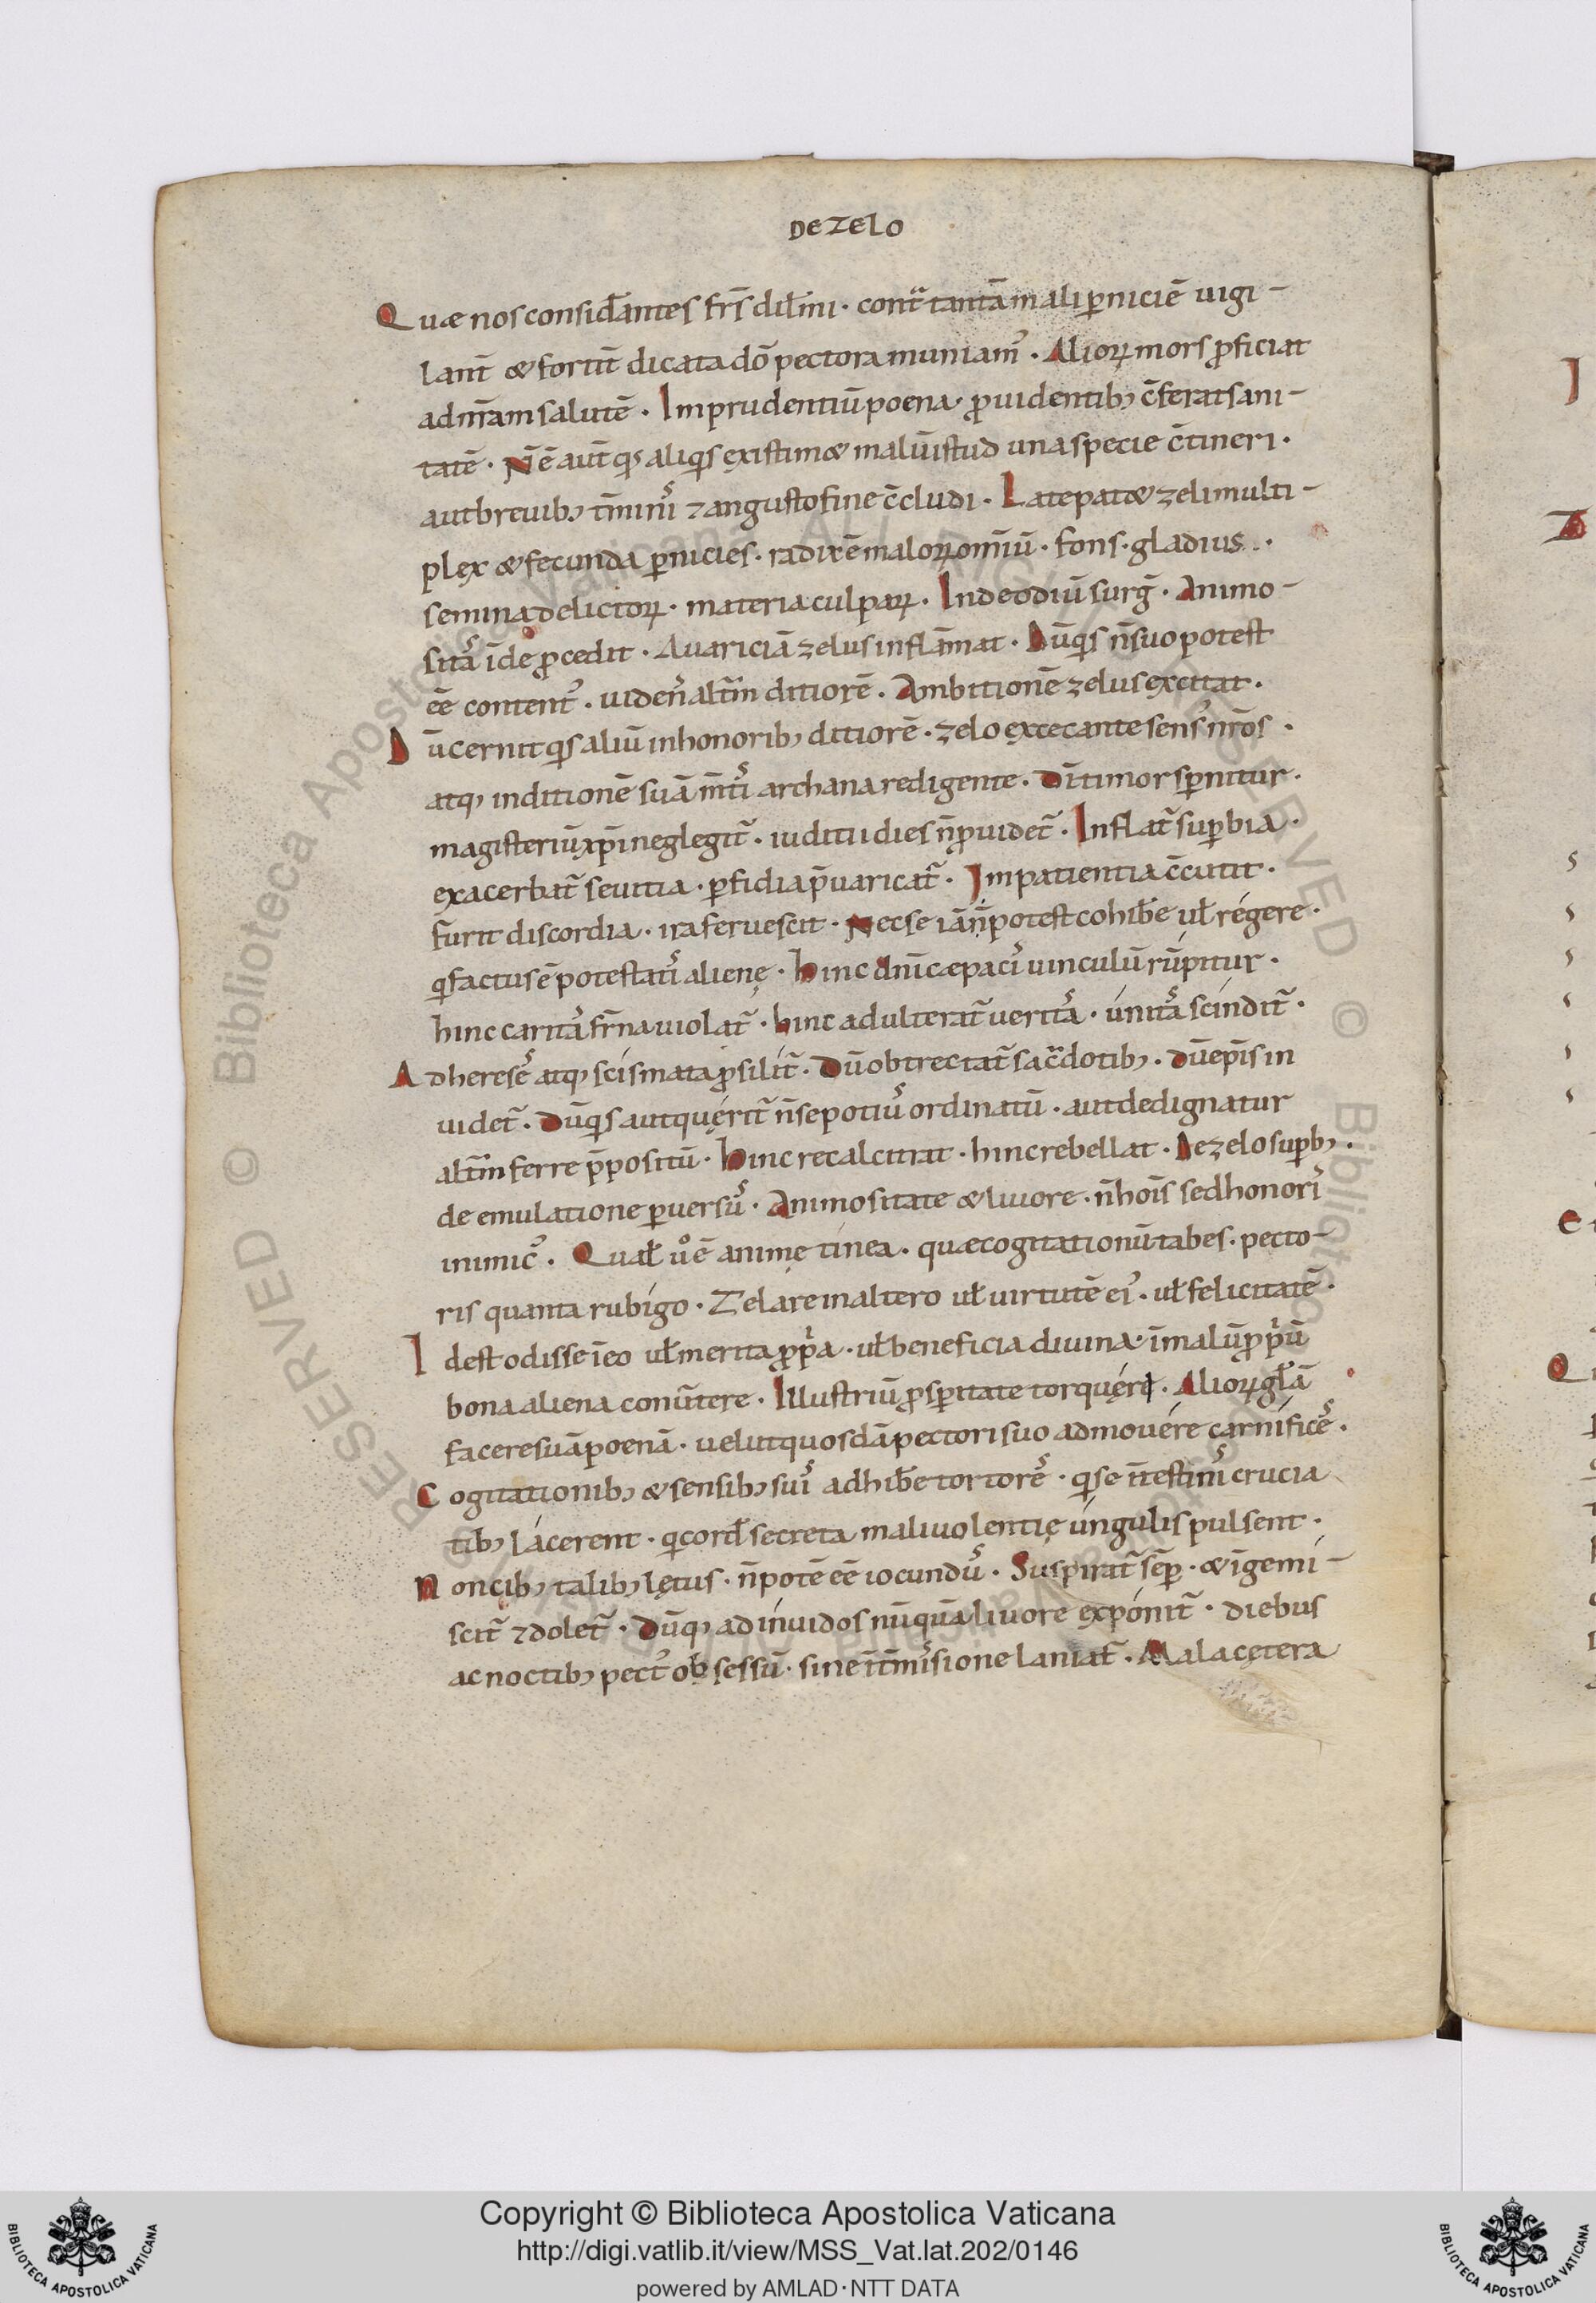 DE ZELO
Quæ nos consid̄antes fr̄s dil̄mi · cont̄ tantā mali p̄niciē uigi-
lant̄ & fortit̄ dicata dō pectora muniam᾿ . Alioꝝ mors ꝓficiat
ad nr̄am salutē . Imprudentiū poena · ꝓuidentib; c̄ferat sani-
tatē · Nē ē aut̄ qͥs aliqͥs existim& malū istud una specie c̄tineri ·
aut breuib; t̄minis ⁊ angusto fine c̄cludi . Late pat& zeli multi-
plex & fecunda ꝑnicies · radix ē maloꝝ omīū · fons · gladius ·
semina delictoꝝ · materia culpaꝝ . Inde odiū surḡ . Animo-
sitas īde ꝓcedit . Auariciā zelus inflāmat . Dū qͥs n̄ suo potest
eē content᾿ . uidens alt̄m ditiorē . Ambitionē zelus excitat .
Dū cernit qͥs aliū in honorib; ditiorē . zelo excecante sens᾿ nr̄os .
atq; in ditionē suā m̄tis archana redigente . Dī timor sꝑnitur .
magisteriū xp̄i neglegit᷑ . iudicii dies n̄ ꝓuidet᷑ . Inflat᷑ suꝑbia .
exacerbat᷑ seuitia . ꝑfidia p̄uaricat᷑ . Impatientia c̄cutit .
furit discordia . ira feruescit . Nec se iā n̄ potest cohib̄e ul̄ régere .
qͥ factus ē potestatis alienę . hinc dn̄icæ pacis uinculū rūpitur .
hinc caritas fr̄na uiolat᷑ . hinc adulterat᷑ ueritas . únitas scíndit᷑ .
Ad hereses atq; scismata ꝓsilit᷑ . Dū obtrectat᷑ sac̄dotib; . dū ep̄is in
uidet᷑ . Dū qͥs aut quęrit᷑ n̄ se potius ordinatū . aut dedignatur
alt̄m ferre p̄positū . Hinc recalcitrat . hinc rebellat . De zelo suꝑb; .
de emulatione ꝑuersus . Animositate & liuore . n̄ hoīs sed honoris
inimic᾿ . Qual̄ u͛ ē animę tínea . quæ cogitationū tabes . pecto-
ris quanta rubígo . Zelare in altero ul̄ uirtutē ei᾿ . ul̄ felicitatē .
Id est odisse ī eo ul̄ merita ꝓp̄a . ul̄ beneficia diuina . ī malū ꝓp̄ū
bona aliena conūtere . Illustriū ꝓsꝑitate torquęri . Alioꝝ gl̄am
facere suā poenā . uelut quosdā pectori suo admouére carnífices .
Cogitationib; & sensib; suis adhib̄e tortores . qͥ se īt̄estinis crucia
tib; lácerent . qͥ cord̄ secreta maliuolentię úngulis pulsent .
Non cib; talib; lętus . n̄ pot̄ ē eē iocundus . Suspirat᷑ sēp . & īgemi-
scit᷑ ⁊ dolet᷑ . Dū q; ad ínuidos nūquā liuore expónit᷑ . diebus
ac noctib; pect᾿ obsessū . sine īt̄misione laniat᷑ . Mala cętera
Copyright © Biblioteca Apostolica Vaticana
http://digi.vatlib.it/view/MSS_Vat.lat.202/0146
powered by AMLAD·NTT DATA